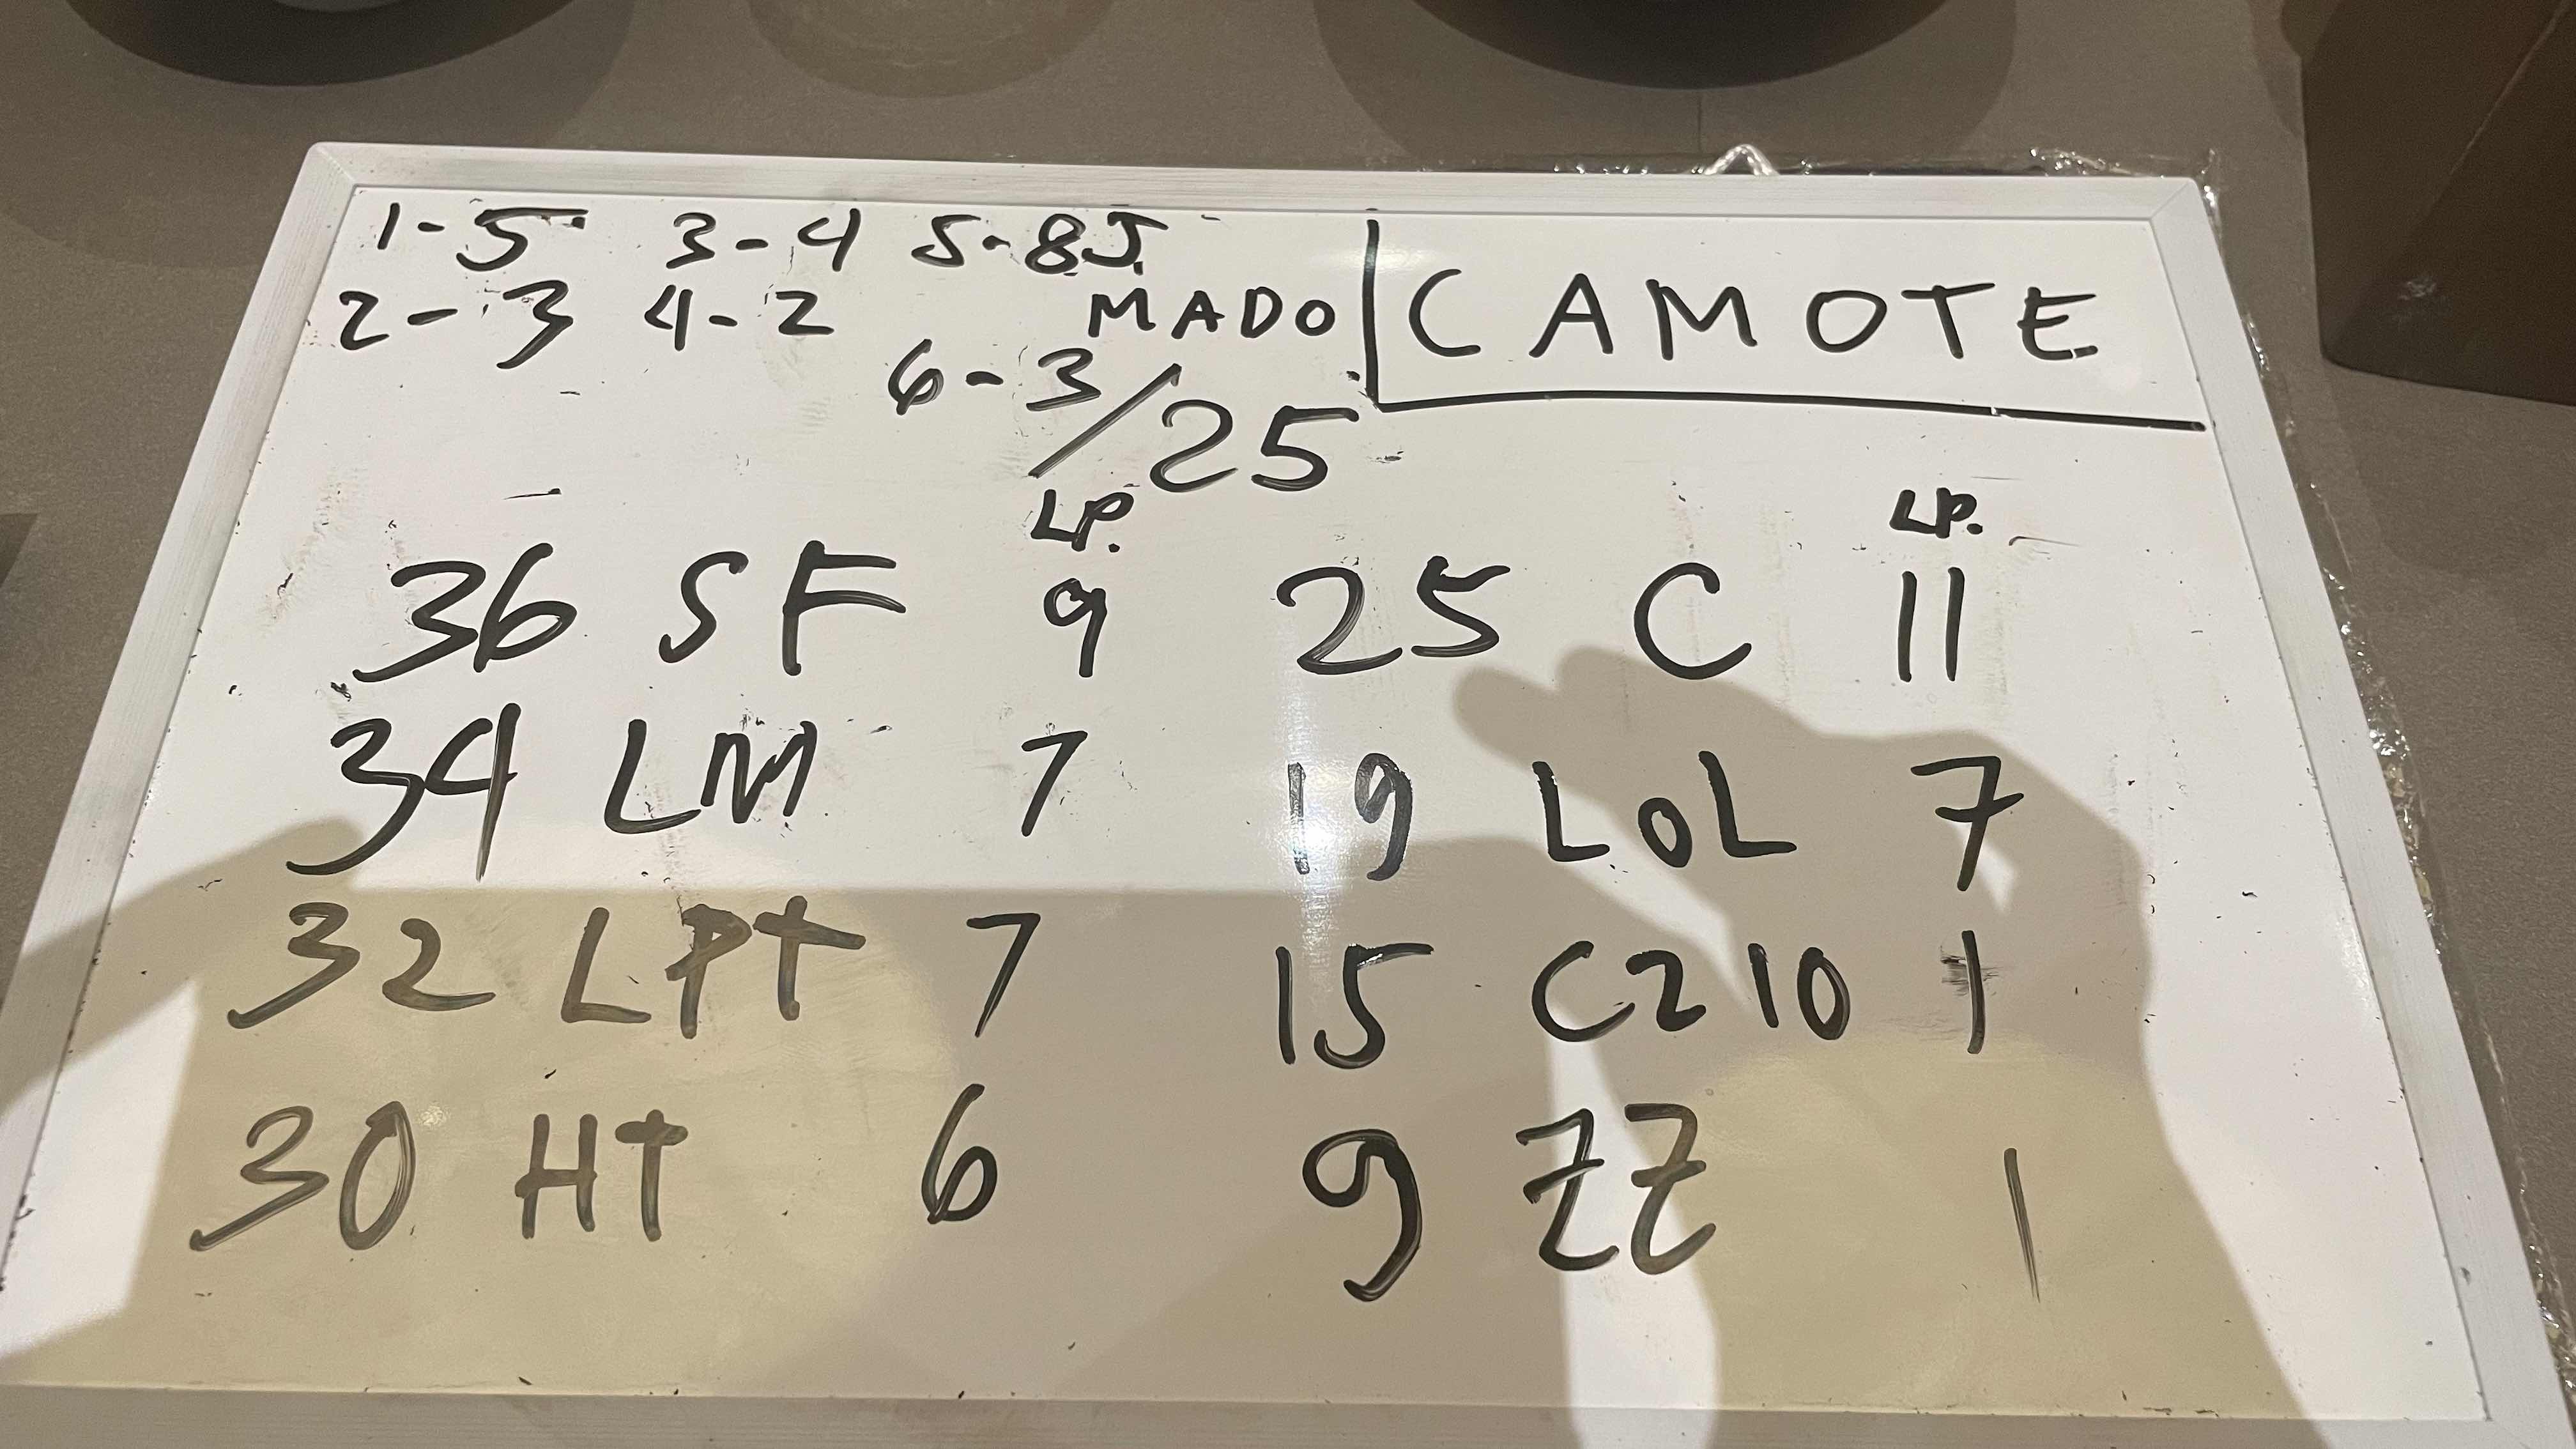 1-5 3-4 5-8J.
2-3 4-2 MADO
CAMOTE
6-3/25
LP. LP.
36 SF 9 25 C 11
34 LM 7 19 LOL 7
32 LPT 7 15 C210 1
30 HT 6 9 ZZ 1